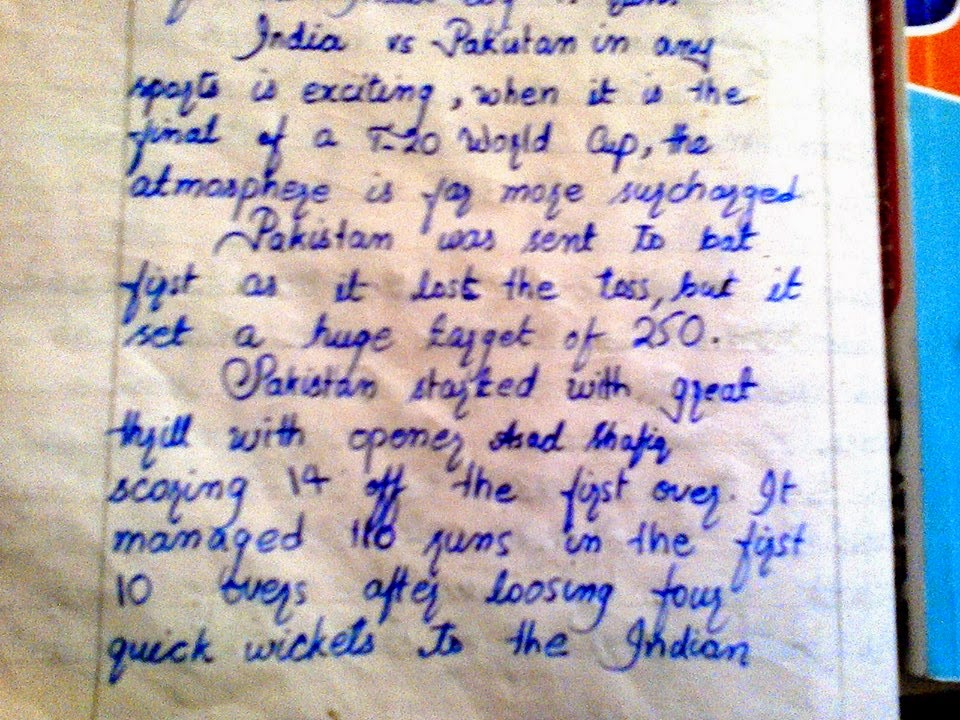 India vs Pakistan in any
sports is exciting, when it is the
final of a T-20 World Cup, the
atmosphere is far more surcharged
Pakistan was sent to bat
first as it lost the toss, but it
set a huge target of 250.
Pakistan started with great
thrill with opener Asad Shafiq
scoring 14 off the first over. It
managed 110 runs in the first
10 overs after loosing four
quick wickets to the Indian